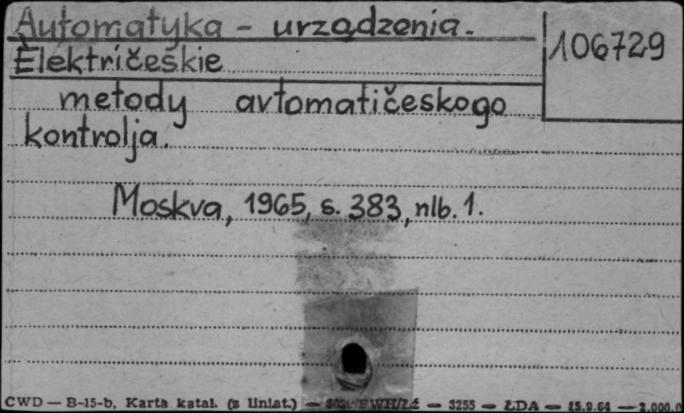 Automatyka - urządzenia.
106729
Električeskie
metody avtomatičeskogo
kontrolja.
Moskva, 1965, s. 383, nlb. 1.
CWD — B-15-b, Karta katal. (z liniat.) — — 3255 — ŁDA — 15.9.64 — 2.000.0